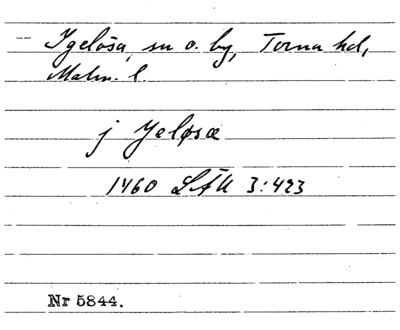 Igelösa, sn o. by, Torna hd,
Malm. l.
j Jeløsæ
1460 LÄU 3:423
Nr 5844.